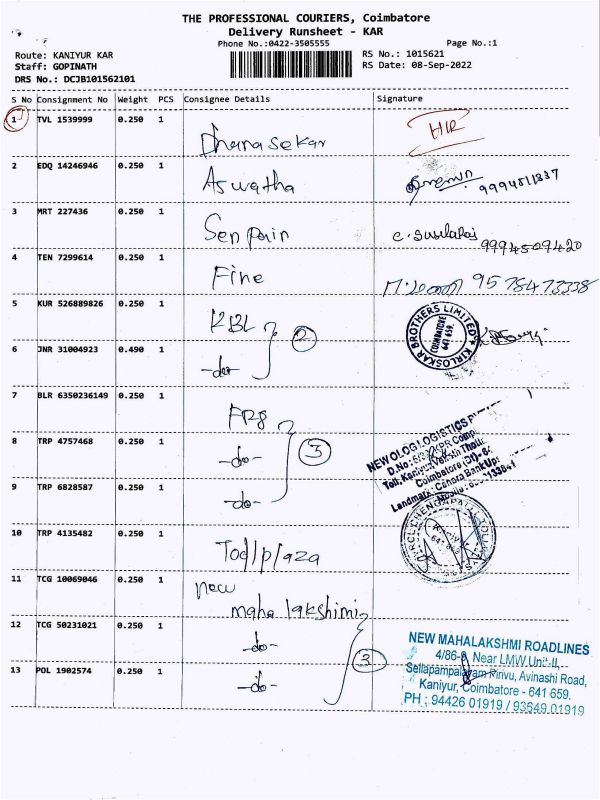 THE PROFESSIONAL COURIERS, Coimbatore
Delivery Runsheet - KAR
Phone No.:0422-3505555
Page No.:1
Route: KANIYUR KAR
RS No.: 1015621
Staff: GOPINATH
RS Date: 08-Sep-2022
DRS No.: DCJB101562101
S No Consignment No Weight PCS Consignee Details Signature
1 TVL 1539999 0.250 1 Dhanasekar HR
2 EDQ 14246946 0.250 1 Aswatha 9994511337
3 MRT 227436 0.250 1 Senpain 9994509420
4 TEN 7299614 0.250 1 Fine 9578473338
5 KUR 526889826 0.250 1 KBL
KIRLOSKAR BROTHERS LIMITED
COIMBATORE
641 659.
2
6 JNR 31004923 0.490 1 -do-
7 BLR 6350236149 0.250 1
NEW OLOG LOGISTICS
8 TRP 4757468 0.250 1 -do-
3
Coimbatore
9 TRP 6828587 0.250 1 -do-
10 TRP 4135482 0.250 1 Toll/plaza
11 TCG 10069046 0.250 1 new
maha lakshimi
12 TCG 50231021 0.250 1 -do-
3
13 POL 1902574 0.250 1 -do-
NEW MAHALAKSHMI ROADLINES
Near LMW Unit-II,
Pirivu, Avinashi Road,
Kaniyur, Coimbatore - 641 659.
PH : 94426 01919 / 93649 01919